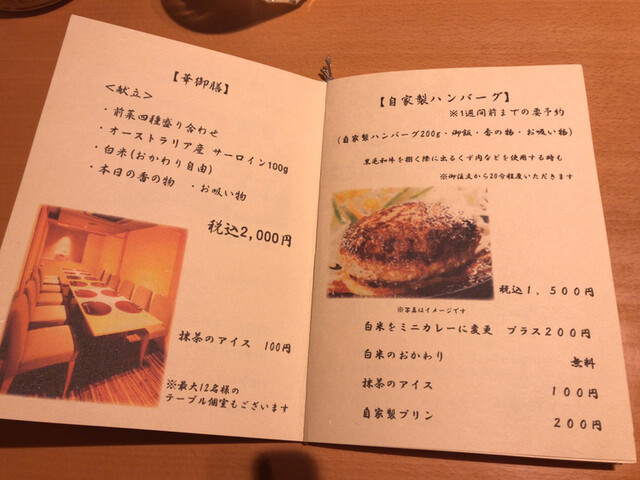 【華御膳】
<献立>
・前菜四種盛り合わせ
・オーストラリア産 サーロイン100g
・白米(おかわり自由)
・本日の香の物 ・お吸い物
税込2,000円
抹茶のアイス 100円
※最大12名様の
テーブル個室もございます
【自家製ハンバーグ】
※1週間前までの要予約
(自家製ハンバーグ200g・御飯・香の物・お吸い物)
黒毛和牛を捌く際に出るくず肉などを使用する時も
※御注文から20分程度いただきます
税込1,500円
※写真はイメージです
白米をミニカレーに変更 プラス200円
白米のおかわり 無料
抹茶のアイス 100円
自家製プリン 200円